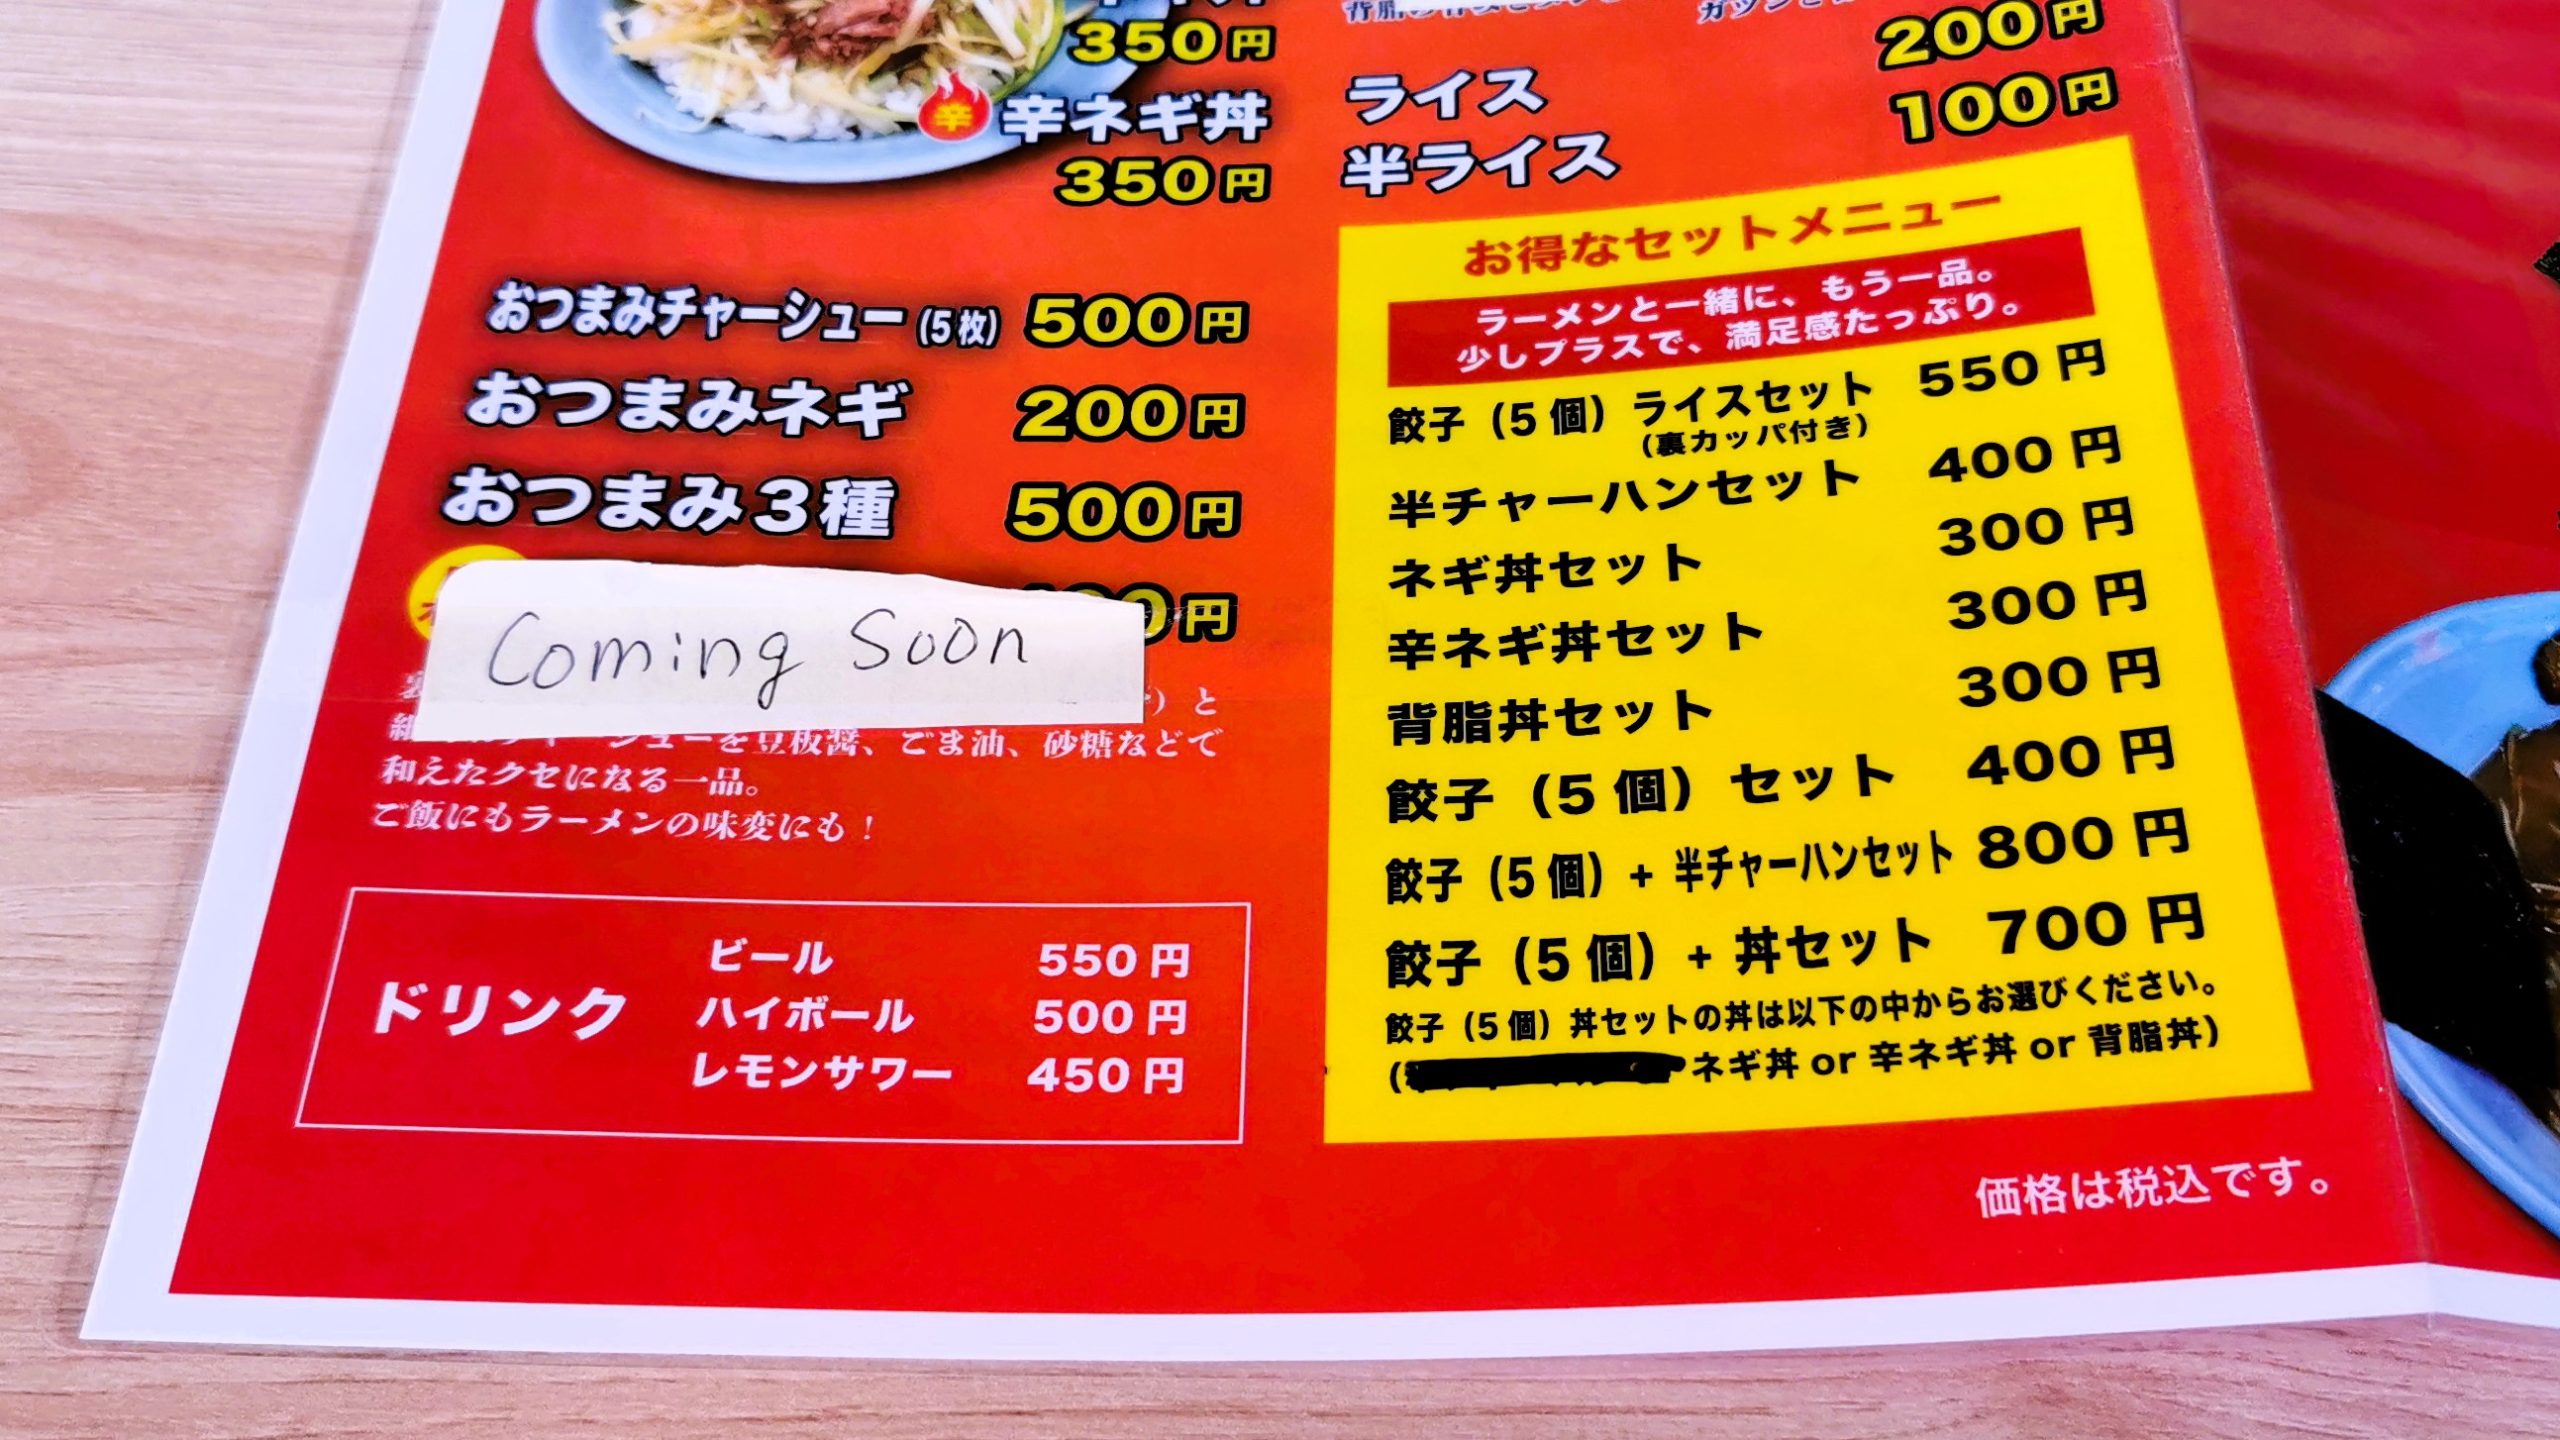 350円
辛 辛ネギ丼
350円
おつまみチャーシュー(5枚) 500円
おつまみネギ 200円
おつまみ3種 500円
Coming Soon
円
と
を豆板醤、ごま油、砂糖などで
和えたクセになる一品。
ご飯にもラーメンの味変にも!
ドリンク
ビール 550円
ハイボール 500円
レモンサワー 450円
ライス 200円
半ライス 100円
お得なセットメニュー
ラーメンと一緒に、もう一品。
少しプラスで、満足感たっぷり。
餃子(5個)ライスセット 550円
(裏カッパ付き)
半チャーハンセット 400円
ネギ丼セット 300円
辛ネギ丼セット 300円
背脂丼セット 300円
餃子(5個)セット 400円
餃子(5個)+半チャーハンセット 800円
餃子(5個)+丼セット 700円
餃子(5個)丼セットの丼は以下の中からお選びください。
(ネギ丼 or 辛ネギ丼 or 背脂丼)
価格は税込です。